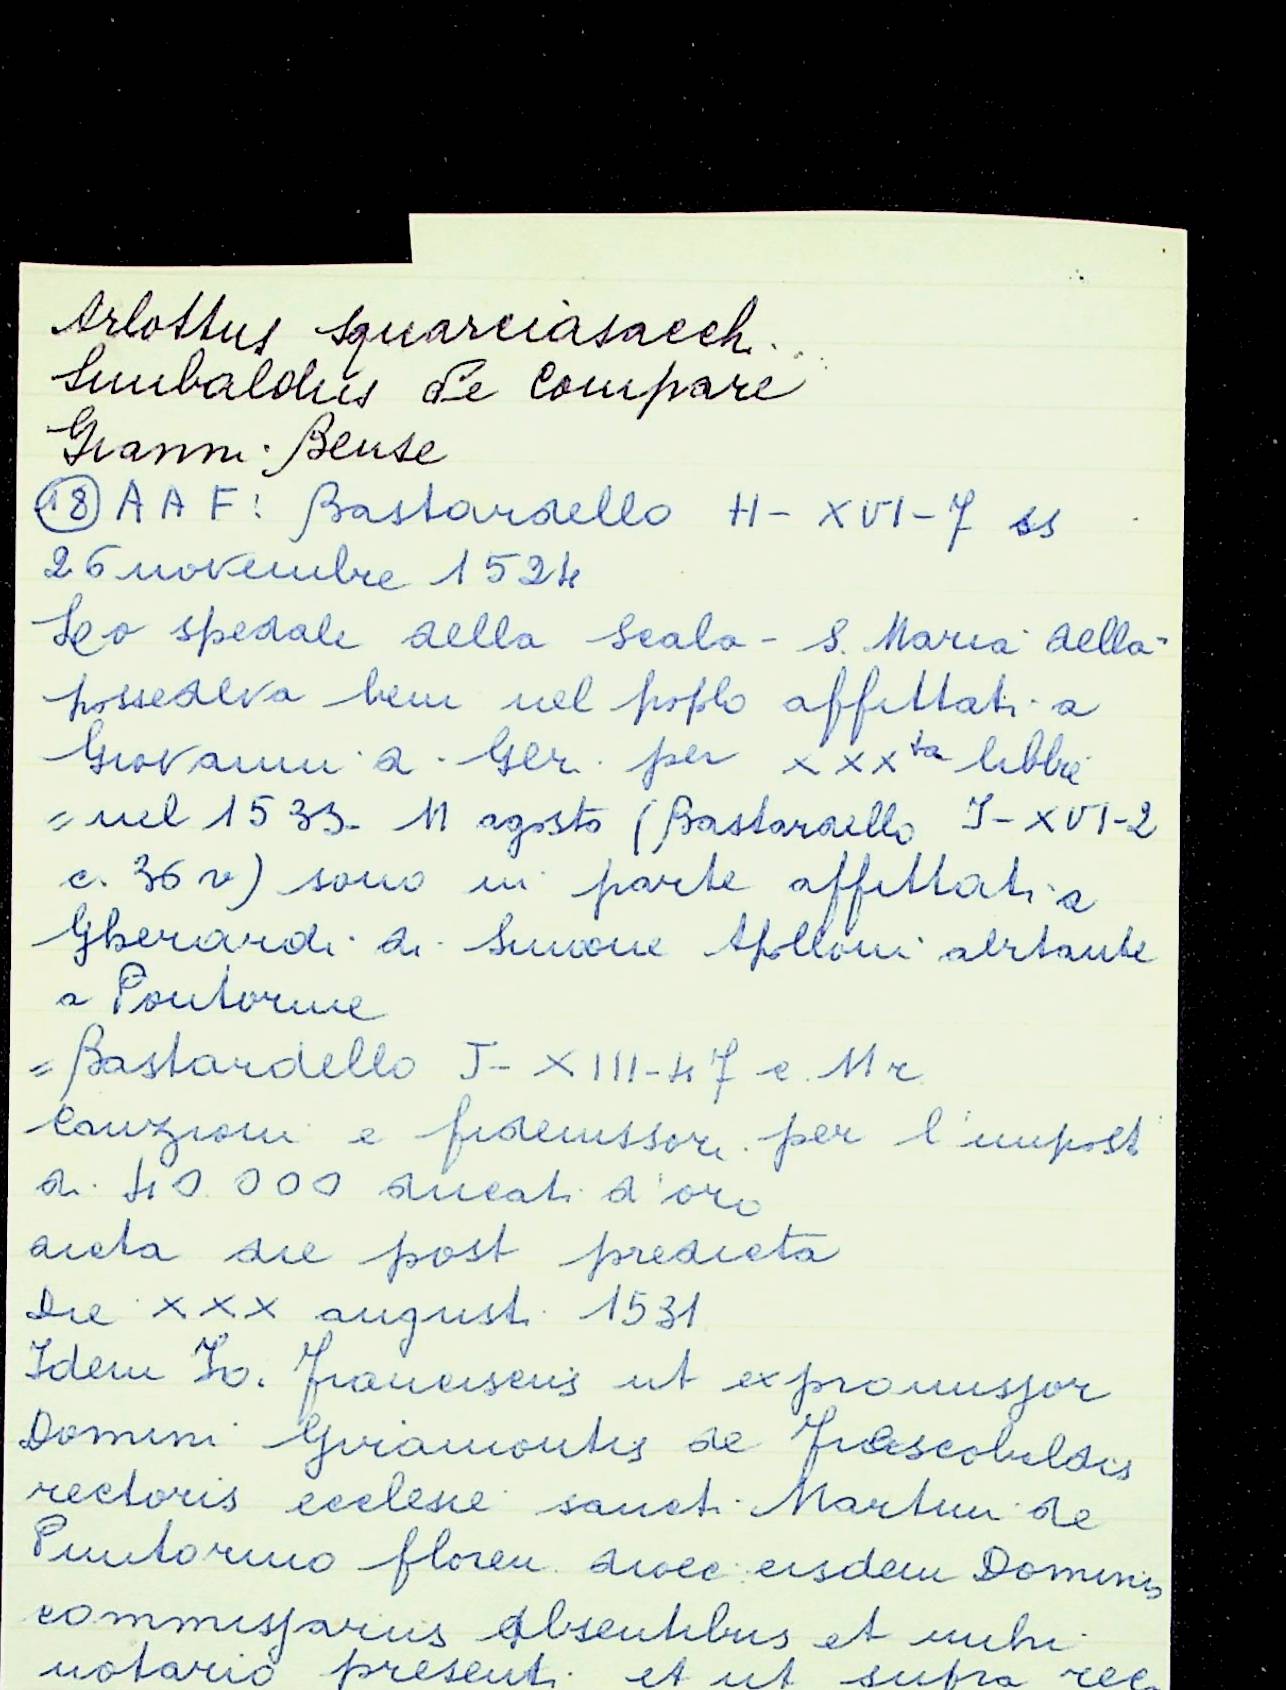 Arlottus squarciasacch.
Sinibaldus de Compare
Gianni Bense
18 A A F: Bastardello H - XVI - 7 ss
26 novembre 1524
Lo spedale della Scala - S. Maria della -
possedeva beni nel poplo affittati a
Giovanni d. Ger. per XXXta libbre
= nel 1533 - 11 agosto (Bastardello I - XVI - 2
c. 36 v) sono in parte affittati a
Gherardi di Simone Apolloni abitante
a Pontorme
= Bastardello I - XIII - 47 c. 11 r
Cauzioni e fideiussori per l'impost
di 40.000 ducati d'oro
dicta die post predicta
Die XXX augusti 1531
Idem Io. Franciscus ut expromissor
Domini Giramontis de Frescobaldis
rectoris ecclesie sancti Martini de
Puntormo floren. dioec. eisdem Dominis
commissariis absentibus et mihi
notario presenti et ut supra rec.